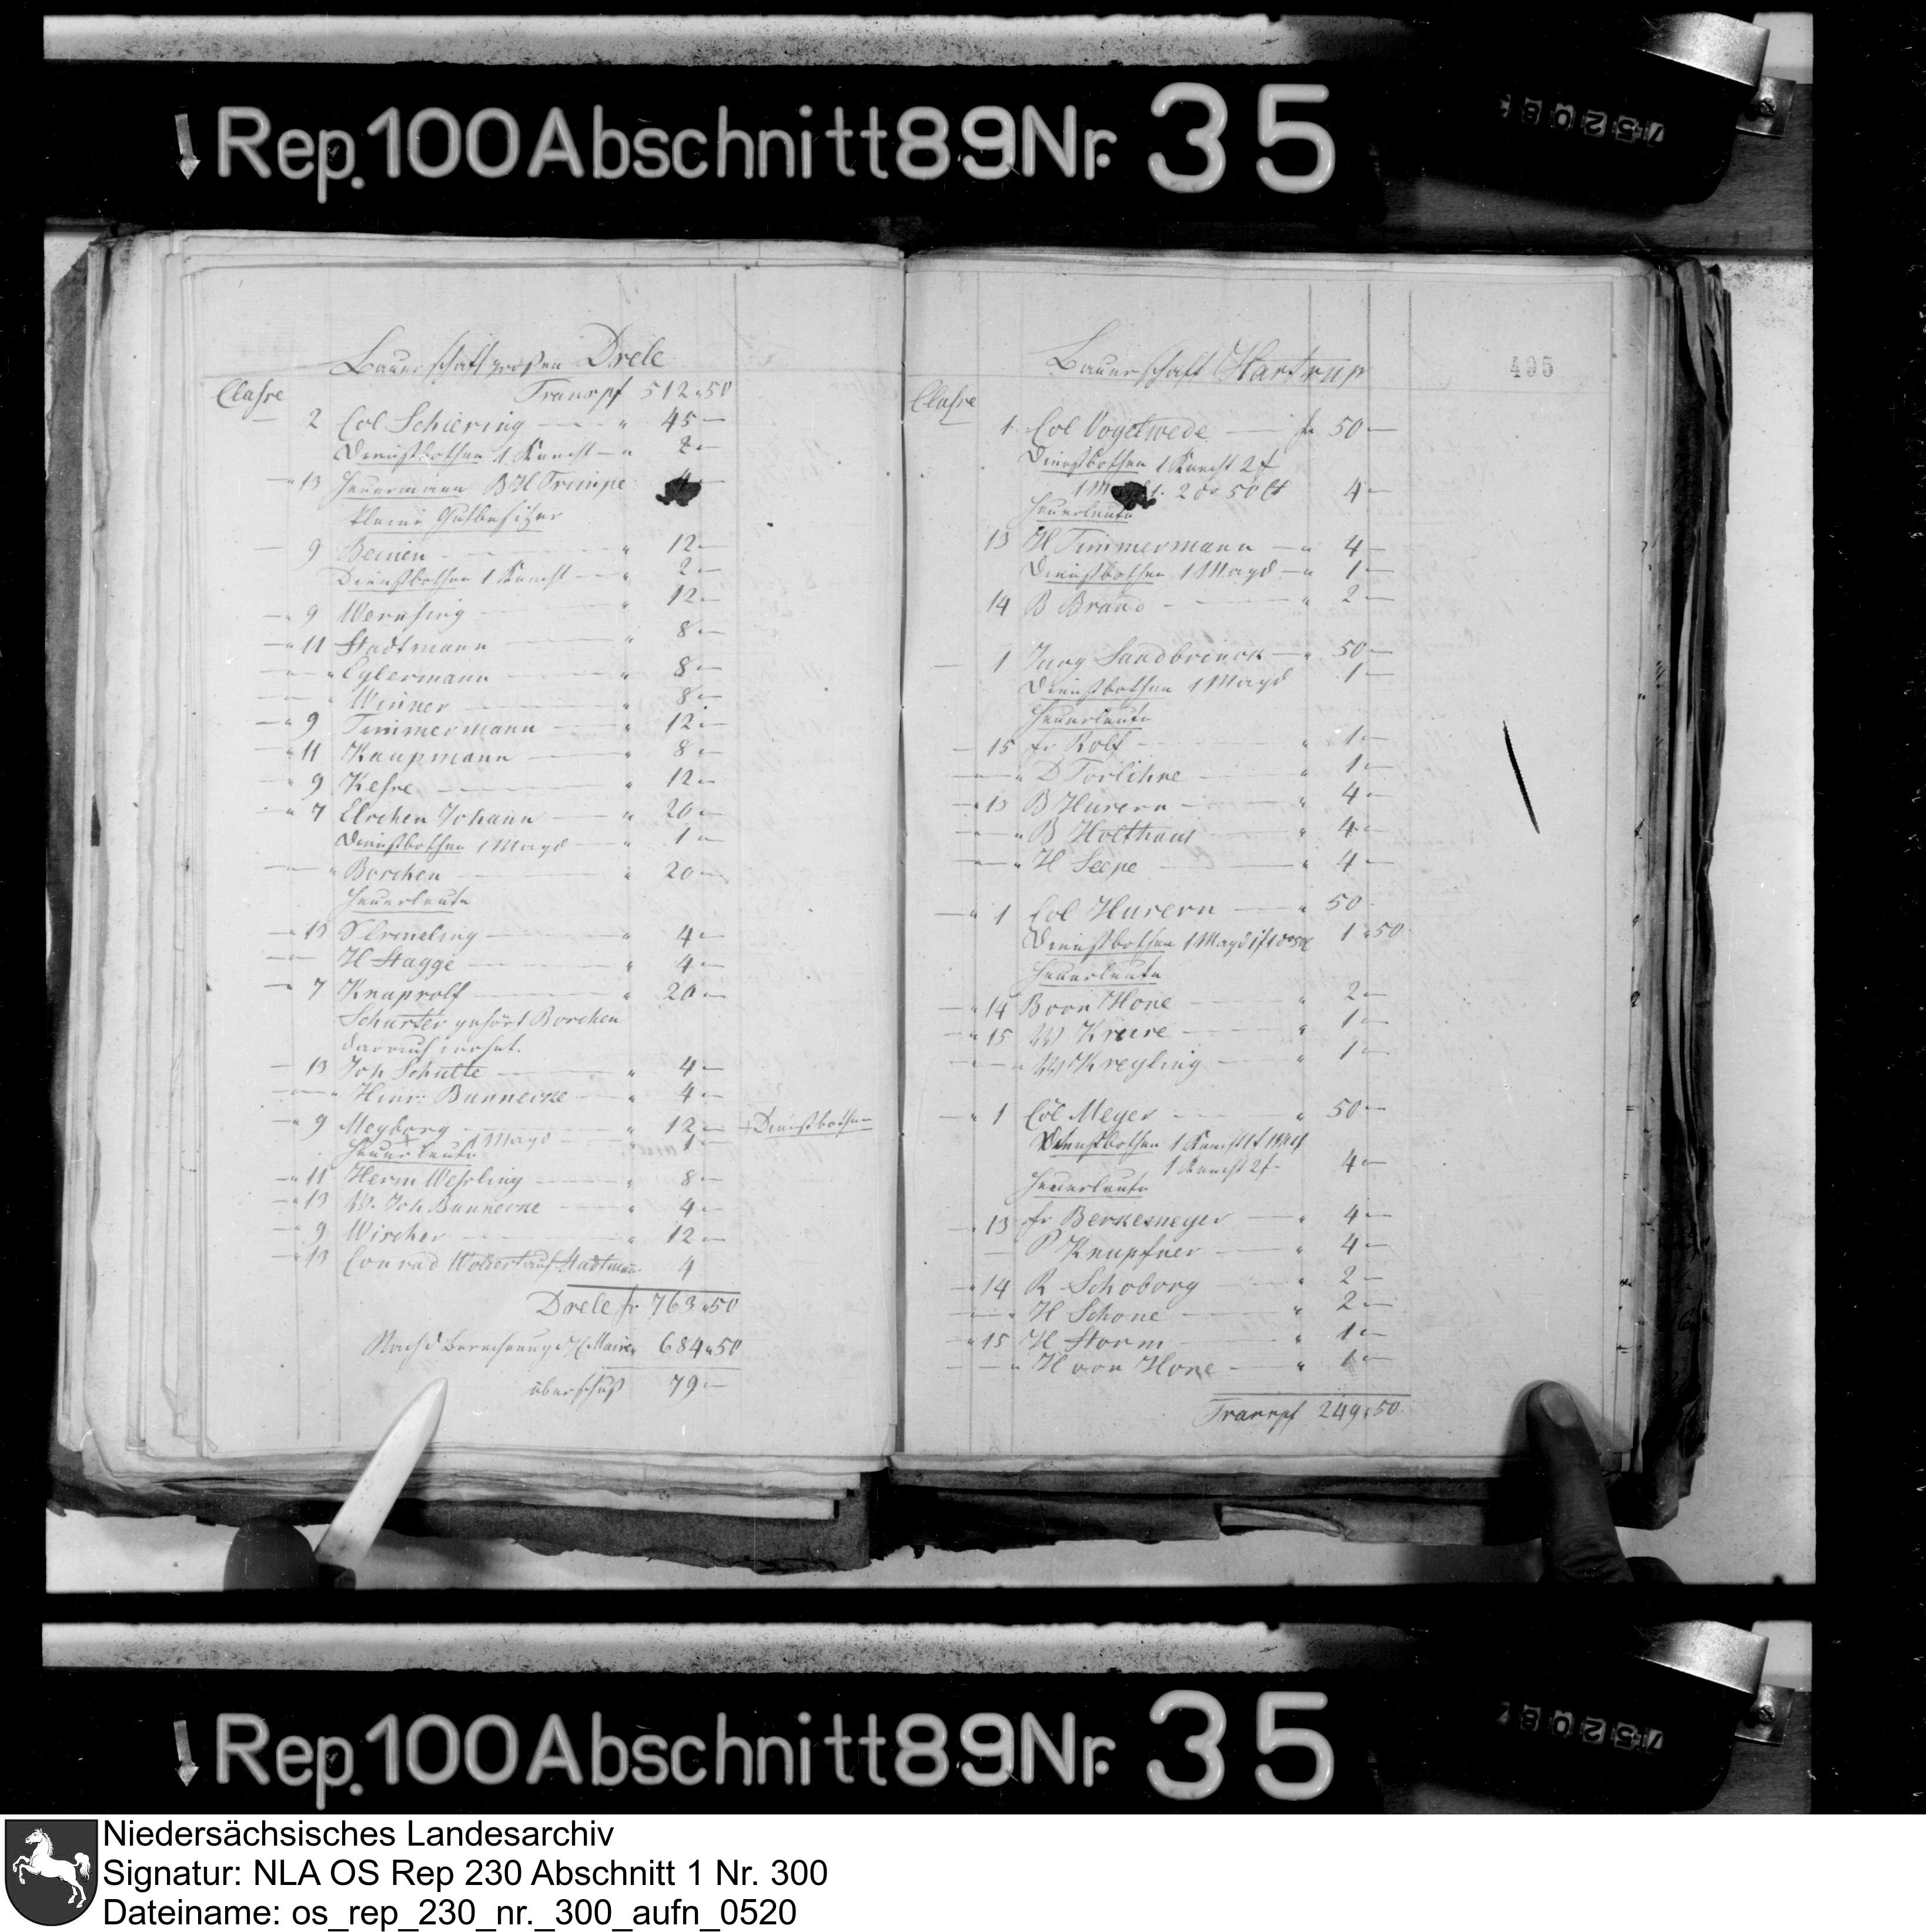 Rep. 100 Abschnitt 89 Nr. 35
Bauerschaft grossen Drele
Classe Transpf 512 " 50
2 Col Schiering " 45 —
Dienstbothen 1 Knecht — " 2 —
" 13 Heuermann B H Trimpe 4 —
kleine Gutbesitzer
9 Beinen " 12 —
Dienstbothen 1 Knecht — " 2 —
" 9 Wernsing " 12 —
" 11 Stadtmann " 8 —
" " Eylermann " 8 —
" " Winner " 8 —
" 9 Timmermann " 12 —
" 11 Kaupmann " 8 —
" 9 Kesse " 12 —
" 7 Elschen Johann " 20 —
Dienstbothen 1 Magd — " 1 —
" " Borchen " 20 —
Heuerleute
" 13 " 4 —
" " H Stagge " 4 —
" 7 Knaprolf " 20 —
Schuster gehört Borchen
" 13 Joh Schulte " 4 —
" " Hinr: Bunnecke " 4 —
" 9 Meyborg " 12 — + Dienstbothen
+ 1 Magd 1 —
Heuerleute
" 11 Herm Wehrling " 8 —
" 13 W. Joh Bunnecke " 4 —
" 9 Wischer " 12 —
" 13 Conrad Woldert auf Stadtmann 4
Drele fr 763 " 50
Nach d Berechnung d H Maire " 684 " 50
überschuß 79 —
Bauerschaft Hastrup
495
Classe
1 Col Vogelwede fr 50 —
Dienstbothen 1 Knecht 2 f
1 Magd 1. 2 do 50 Ct 4 —
Heuerleute
13 H Timmermann — " 4 —
Dienstbothen 1 Magd — " 1 —
14 B Brand " 2 —
1 Jurg Sandbrinck — " 50 —
Dienstbothen 1 Magd 1 —
Heuerleute
" 15 fr Rolf " 1 —
" " D Torlihne " 1 —
" 13 B Husern " 4 —
" " B Holthaus " 4 —
" " H Seepe " 4 —
" 1 Col Husern " 50
Dienstbothen 1 Magd 1 " 50
Heuerleute
" 14 B von Hone " 2 —
" 15 W Kruse " 1 —
" " W Kreyling " 1 —
" 1 Col Meyer " 50 —
Dienstbothen 1 Knecht
1 Knecht 2 f. 4 —
Heuerleute
" 13 fr Berkemeyer " 4 —
P Knupfner " 4 —
" 14 R Schoborg " 2 —
" " H Schone " 2 —
" 15 H Storm " 1 —
" " H von Hone " 1 —
Transpf 249 " 50
Rep. 100 Abschnitt 89 Nr. 35
Niedersächsisches Landesarchiv
Signatur: NLA OS Rep 230 Abschnitt 1 Nr. 300
Dateiname: os_rep_230_nr._300_aufn_0520